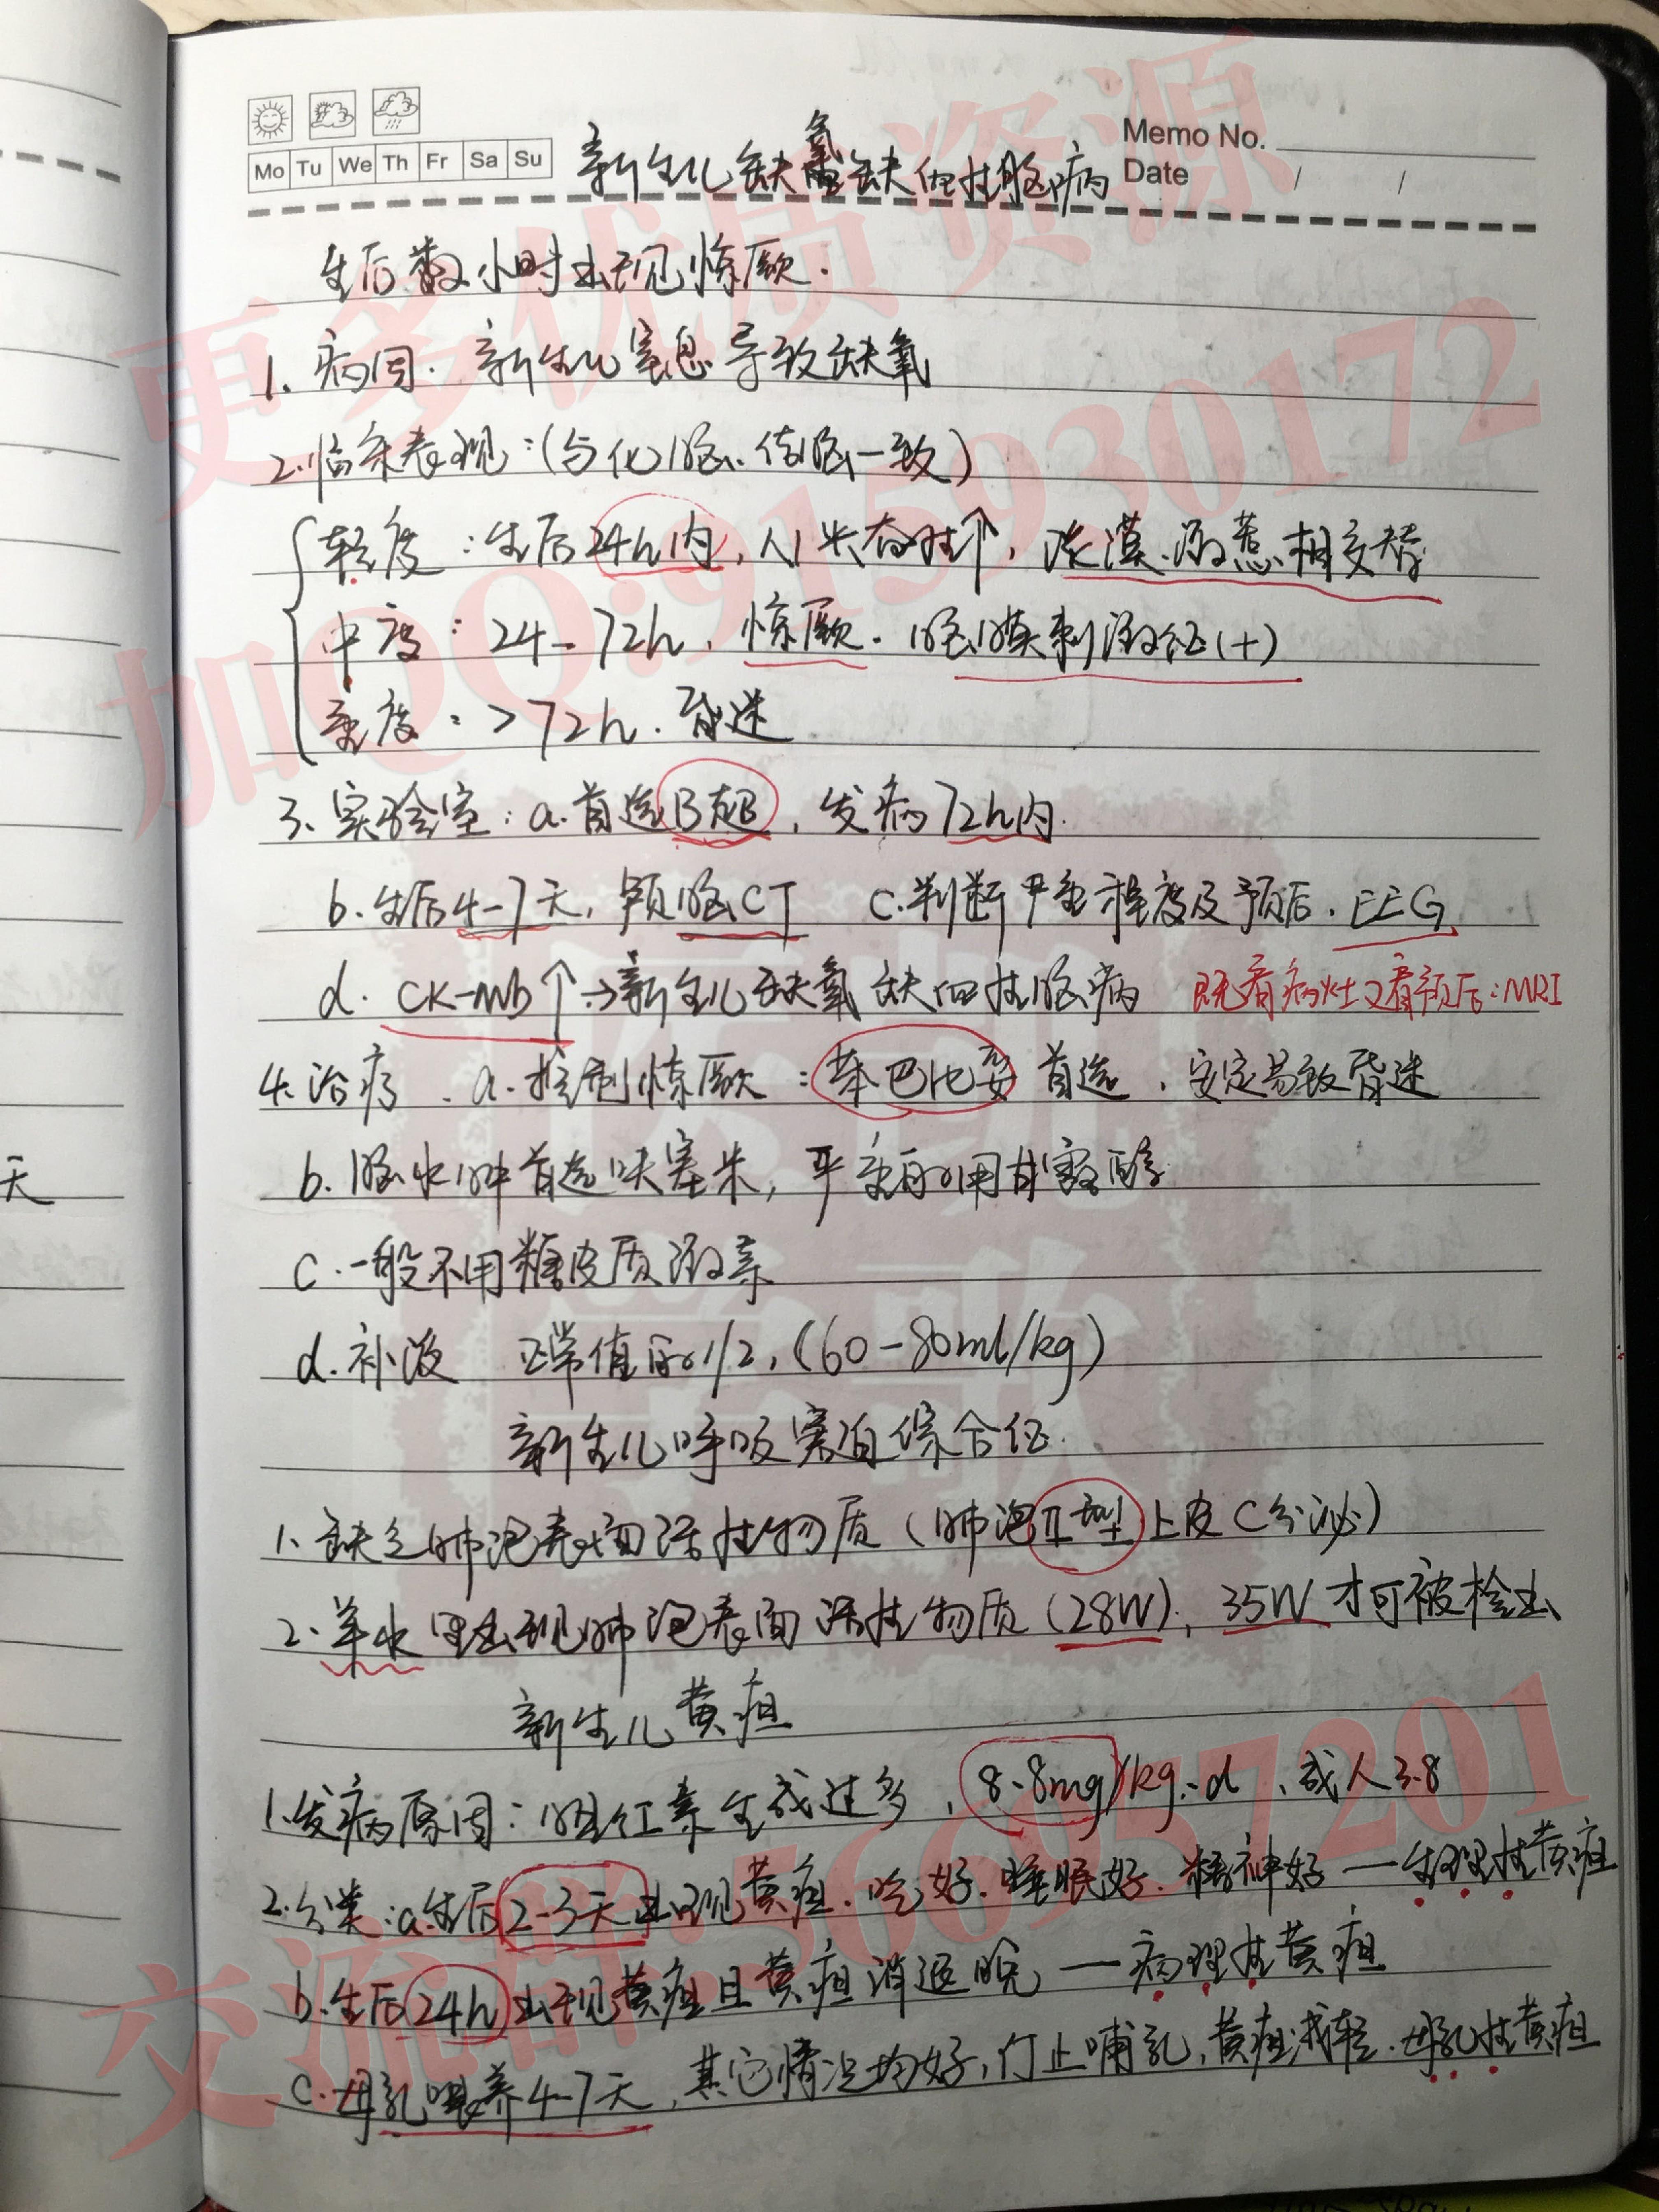 Mo Tu We Th Fr Sa Su
Memo No.
Date / /
新生儿缺氧缺血性脑病
生后数小时出现惊厥.
1、病因. 新生儿窒息导致缺氧
2.临床表现:(与化脑、结脑一致)
轻度:生后24h内,人兴奋性↑,淡漠、激惹相交替
中度:24-72h,惊厥.脑膜刺激征(+)
重度:>72h.昏迷
3、实验室:a.首选B超,发病72h内.
b.生后4-7天,颅脑CT c.判断严重程度及预后.EEG
d. CK-mb↑→新生儿缺氧缺血性脑病 既看病灶又看预后:MRI
4.治疗.a.控制惊厥:苯巴比妥首选,安定易致昏迷
b.脑水肿首选呋塞米,严重的用甘露醇
c.一般不用糖皮质激素
d.补液 正常值的1/2,(60-80ml/kg)
新生儿呼吸窘迫综合征.
1、缺乏肺泡表面活性物质(肺泡Ⅱ型上皮C分泌)
2、羊水里出现肺泡表面活性物质(28W),35W才可被检出
新生儿黄疸
1.发病原因:胆红素生成过多,8.8mg/kg.d,成人3.8
2.分类:a.生后2-3天出现黄疸.吃好.睡眠好.精神好—生理性黄疸
b.生后24h出现黄疸且黄疸消退晚—病理性黄疸
c.母乳喂养4-7天,其它情况均好,停止哺乳,黄疸减轻.母乳性黄疸
天
更多优质资源
加QQ:915930172
交流群:566957201